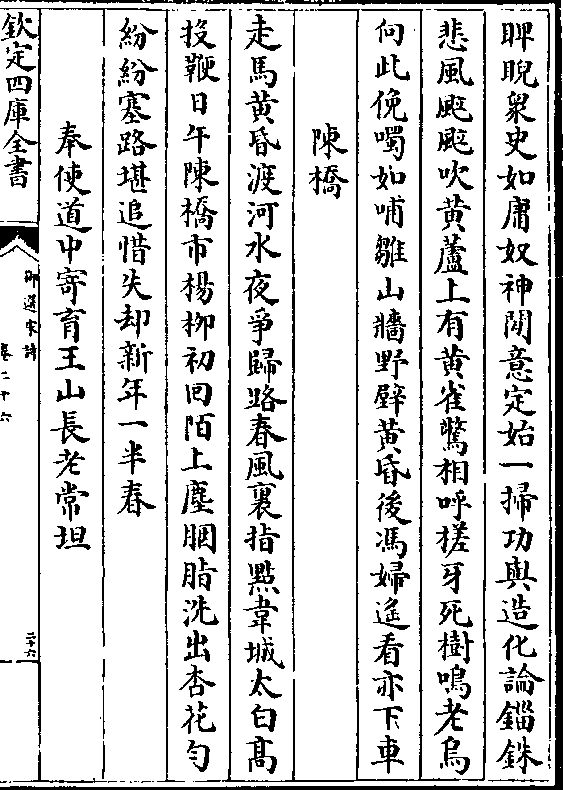 睥睨衆史如庸奴神閒意定始一掃功與造化論錙銖
悲風颭颭吹黄蘆上有黄雀驚相呼槎牙死樹鳴老烏
向此俛噣如哺雛山牆野壁黄昏後馮婦遙看亦下車
陳橋
走馬黄昏渡河水夜爭歸路春風裏指點韋城太白髙
投鞭日午陳橋市楊栁初回陌上塵胭脂洗出杏花匀
紛紛塞路堪追惜失却新年一半春
奉使道中寄育王山長老常坦
欽定四庫全書
御選宋詩
卷二十六
二十六